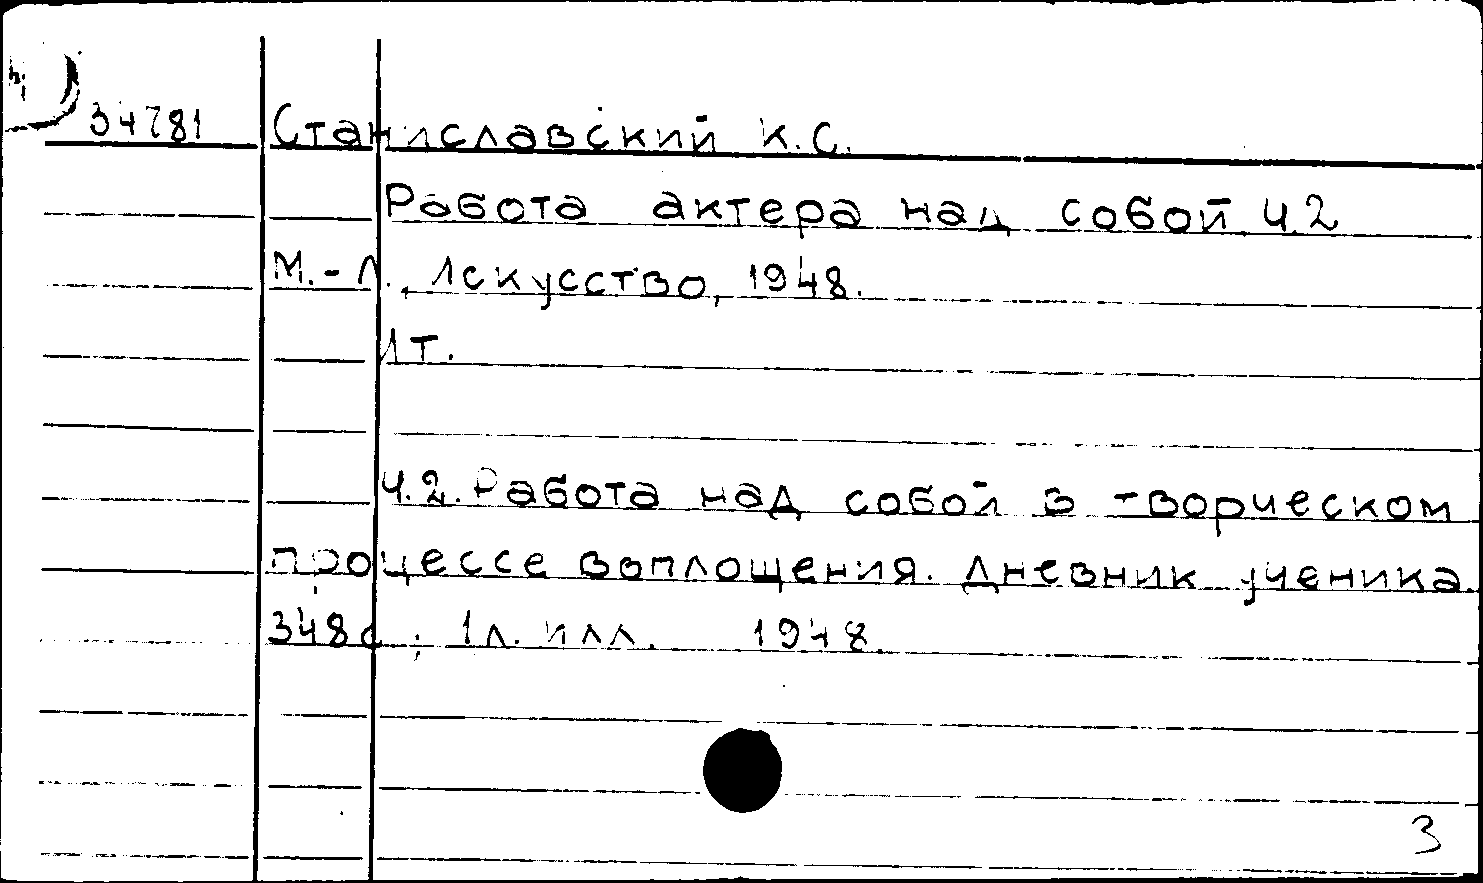 34781 Станиславский К.С.
Работа актера над собой ч.2
М.-Л., Искусство, 1948.
1т.
Ч.2. Работа над собой в творческом
процессе воплощения. Дневник ученика.
348с.; 1л. илл. 1948.
3